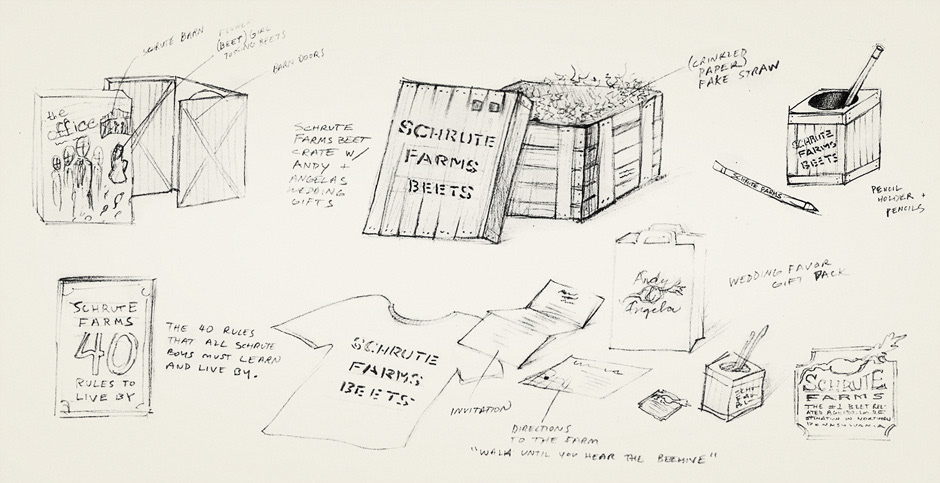 SCHRUTE BARN
(BEET) GIRL
TOSSING BEETS
BARN DOORS
the
office
SCHRUTE
FARMS BEET
CRATE W/
ANDY +
ANGELAS
WEDDING
GIFTS
SCHRUTE
FARMS
BEETS
(CRINKLED
PAPER)
FAKE STRAW
SCHRUTE FARMS
SCHRUTE
FARMS
BEETS
PENCIL
HOLDER +
PENCILS
SCHRUTE
FARMS
40
RULES TO
LIVE BY
THE 40 RULES
THAT ALL SCHRUTE
BOYS MUST LEARN
AND LIVE BY.
SCHRUTE
FARMS
BEETS
INVITATION
DIRECTIONS
TO THE FARM
"WALK UNTIL YOU HEAR THE BEEHIVE"
Andy
Angela
WEDDING FAVOR
GIFT PACK
SCHRUTE
FARMS
THE #1 BEET REL-
IN NORTHERN